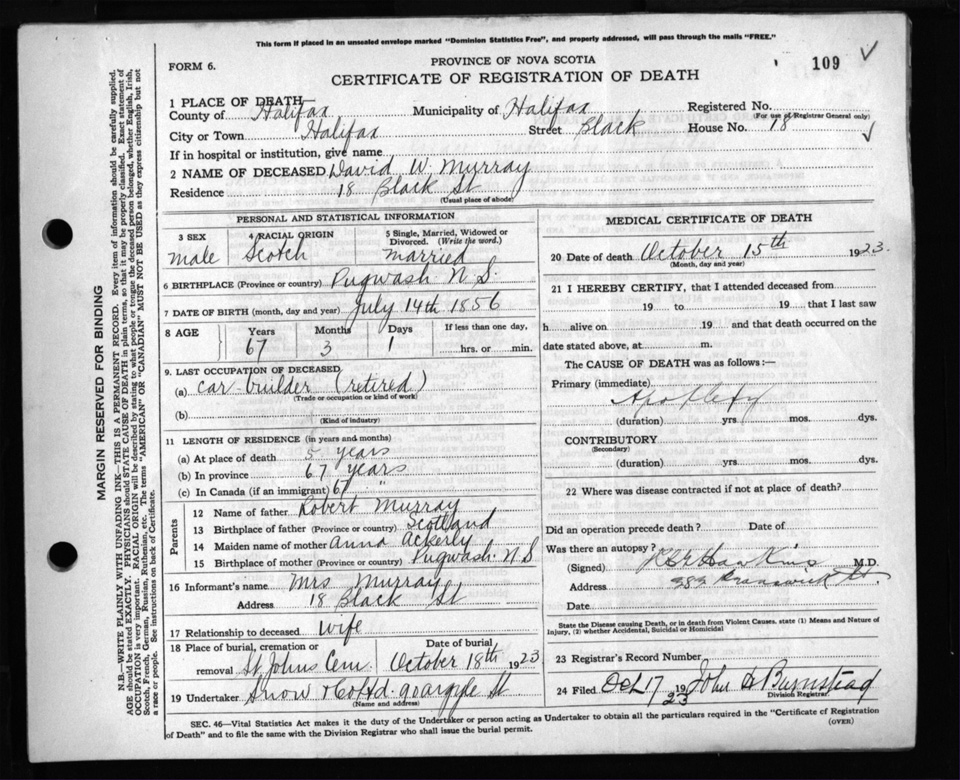 This form if placed in an unsealed envelope marked "Dominion Statistics Free", and properly addressed, will pass through the mails "FREE."
FORM 6.
PROVINCE OF NOVA SCOTIA
CERTIFICATE OF REGISTRATION OF DEATH
109
1 PLACE OF DEATH
County of Halifax Municipality of Halifax Registered No.
(For use of Registrar General only)
City or Town Halifax Street Black House No. 18
If in hospital or institution, give name
2 NAME OF DECEASED David W. Murray
Residence 18 Black St
(Usual place of abode)
PERSONAL AND STATISTICAL INFORMATION
3 SEX 4 RACIAL ORIGIN 5 Single, Married, Widowed or Divorced. (Write the word.)
male Scotch married
6 BIRTHPLACE (Province or country) Pugwash N.S.
7 DATE OF BIRTH (month, day and year) July 14th 1856
8 AGE Years Months Days If less than one day,
67 3 1 hrs. or min.
9. LAST OCCUPATION OF DECEASED
(a) car-builder (retired)
(Trade or occupation or kind of work)
(b)
(Kind of industry)
11 LENGTH OF RESIDENCE (in years and months)
(a) At place of death 5 years
(b) In province 67 years
(c) In Canada (if an immigrant) 67 "
Parents
12 Name of father Robert Murray
13 Birthplace of father (Province or country) Scotland
14 Maiden name of mother Anna Ackerly
15 Birthplace of mother (Province or country) Pugwash N.S
16 Informant's name Mrs Murray
Address 18 Black St
17 Relationship to deceased wife
18 Place of burial, cremation or removal St Johns Cem Date of burial, October 18th 1923
19 Undertaker Snow & Co Ltd. 90 argyle St
(Name and address)
MEDICAL CERTIFICATE OF DEATH
20 Date of death October 15th 1923.
(Month, day and year)
21 I HEREBY CERTIFY, that I attended deceased from
19 to 19 that I last saw
h alive on 19 and that death occurred on the
date stated above, at m.
The CAUSE OF DEATH was as follows:—
Primary (immediate)
Apoplexy
(duration) yrs. mos. dys.
CONTRIBUTORY
(Secondary)
(duration) yrs. mos. dys.
22 Where was disease contracted if not at place of death?
Did an operation precede death? Date of
Was there an autopsy?
(Signed) Hawkins M.D.
Address Brunswick St
Date
State the Disease causing Death, or in death from Violent Causes. state (1) Means and Nature of
Injury, (2) whether Accidental, Suicidal or Homicidal
23 Registrar's Record Number
24 Filed Oct 17 1923 John A Bumstead
Division Registrar
SEC. 46—Vital Statistics Act makes it the duty of the Undertaker or person acting as Undertaker to obtain all the particulars required in the "Certificate of Registration
of Death" and to file the same with the Division Registrar who shall issue the burial permit.
(OVER)
MARGIN RESERVED FOR BINDING
N.B.—WRITE PLAINLY WITH UNFADING INK—THIS IS A PERMANENT RECORD. Every item of information should be carefully supplied.
AGE should be stated EXACTLY. PHYSICIANS should STATE CAUSE OF DEATH in plain terms, so that it may be properly classified. Exact statement of
OCCUPATION is very important. RACIAL ORIGIN will be described by stating to what people or tongue the deceased person belonged, whether English, Irish,
Scotch, French, German, Russian, Ruthenian, etc. The terms "AMERICAN" OR "CANADIAN" MUST NOT BE USED as they express citizenship but not
a race or people. See instructions on back of Certificate.